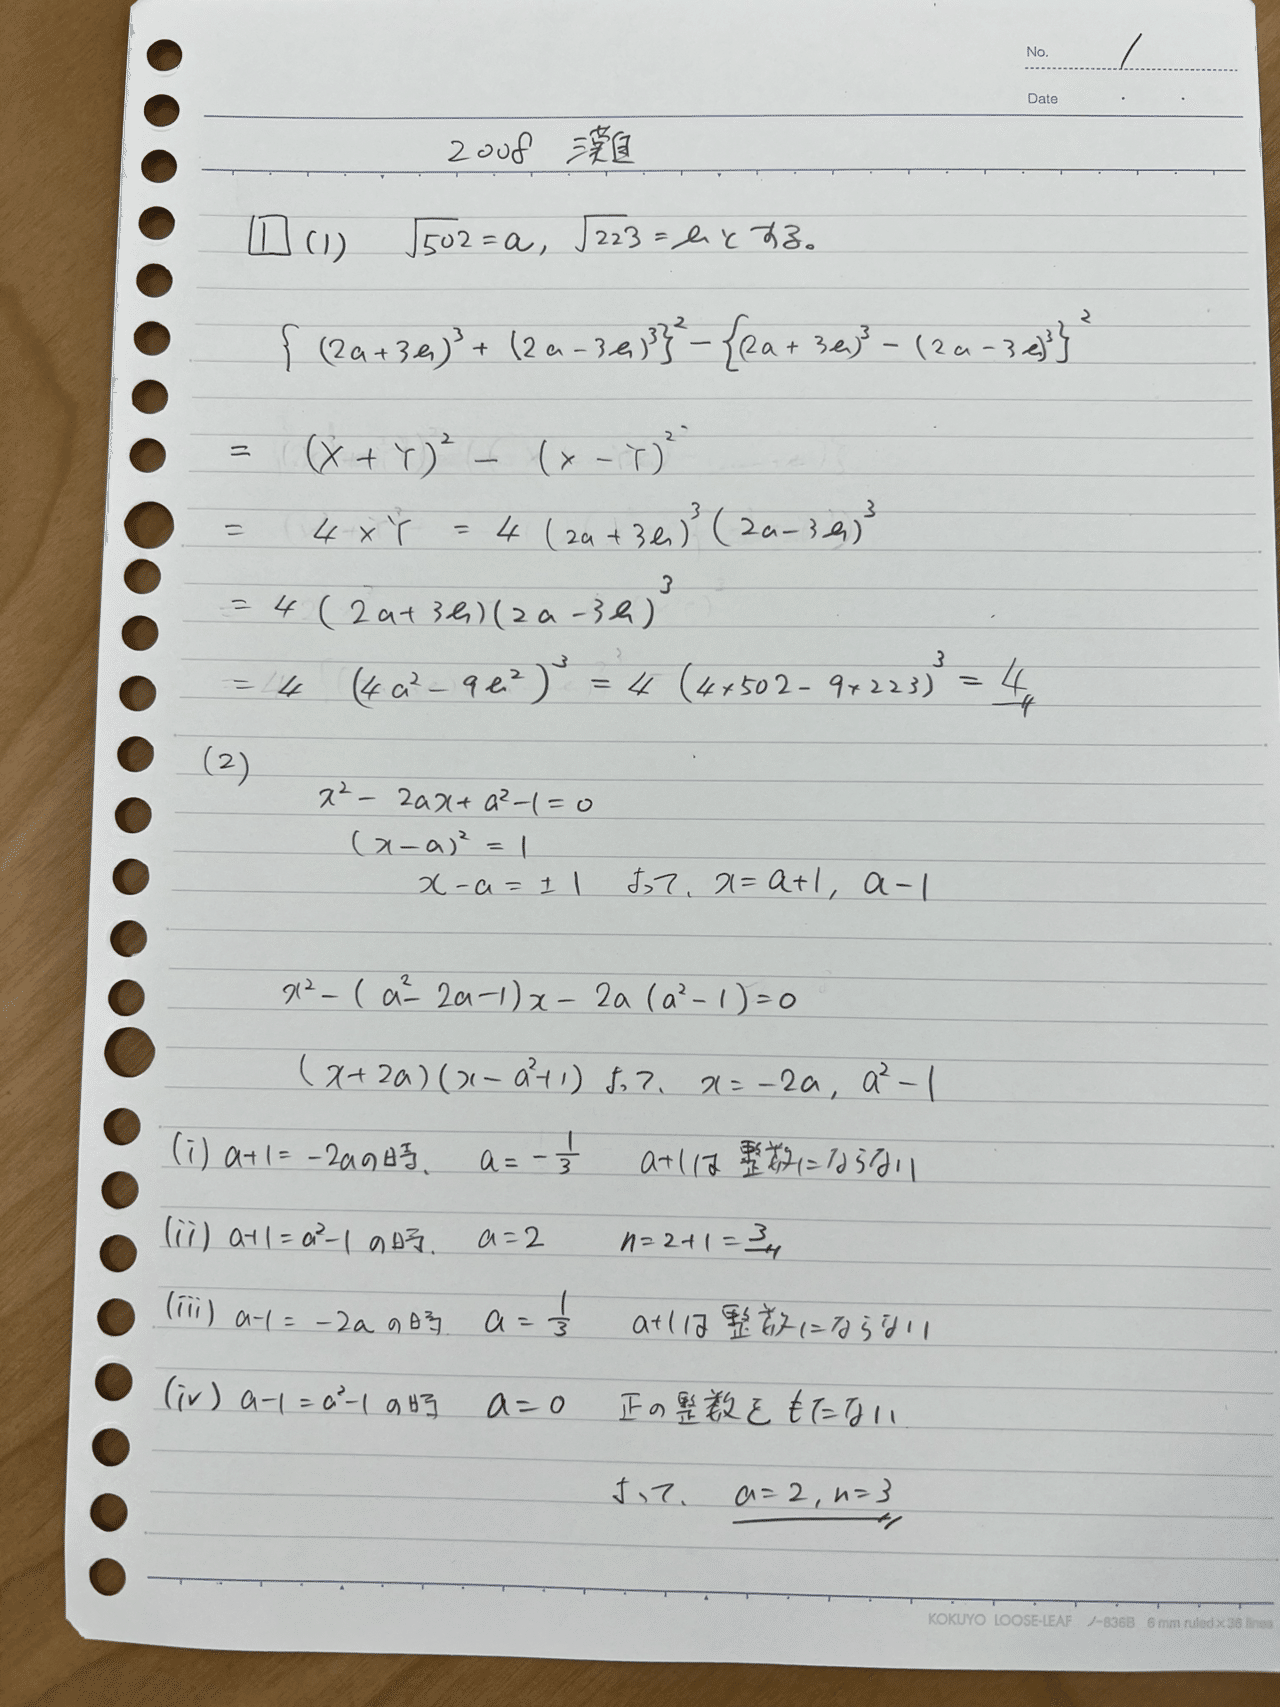 No. 1
Date . .
2008 灘
1 (1) √502=a, √223=bとする。
{(2a+3b)³+(2a-3b)³}²-{(2a+3b)³-(2a-3b)³}²
= (X+Y)² - (X-Y)²
= 4XY = 4(2a+3b)³(2a-3b)³
=4(2a+3b)(2a-3b)³
=4 (4a²-9b²)³ = 4 (4×502-9×223)³ = 4
(2)
x²-2ax+a²-1=0
(x-a)² = 1
x-a=±1 よって、x=a+1, a-1
x²-(a²-2a-1)x-2a(a²-1)=0
(x+2a)(x-a²+1) よって、x=-2a, a²-1
(i) a+1=-2aの時、 a=-1/3 a+1は整数にならない
(ii) a+1=a²-1の時、 a=2 n=2+1=3
(iii) a-1=-2aの時 a=1/3 a+1は整数にならない
(iv) a-1=a²-1の時 a=0 正の整数をもたない
よって、 a=2, n=3
KOKUYO LOOSE-LEAF ノ-836B 6 mm ruled×36 lines